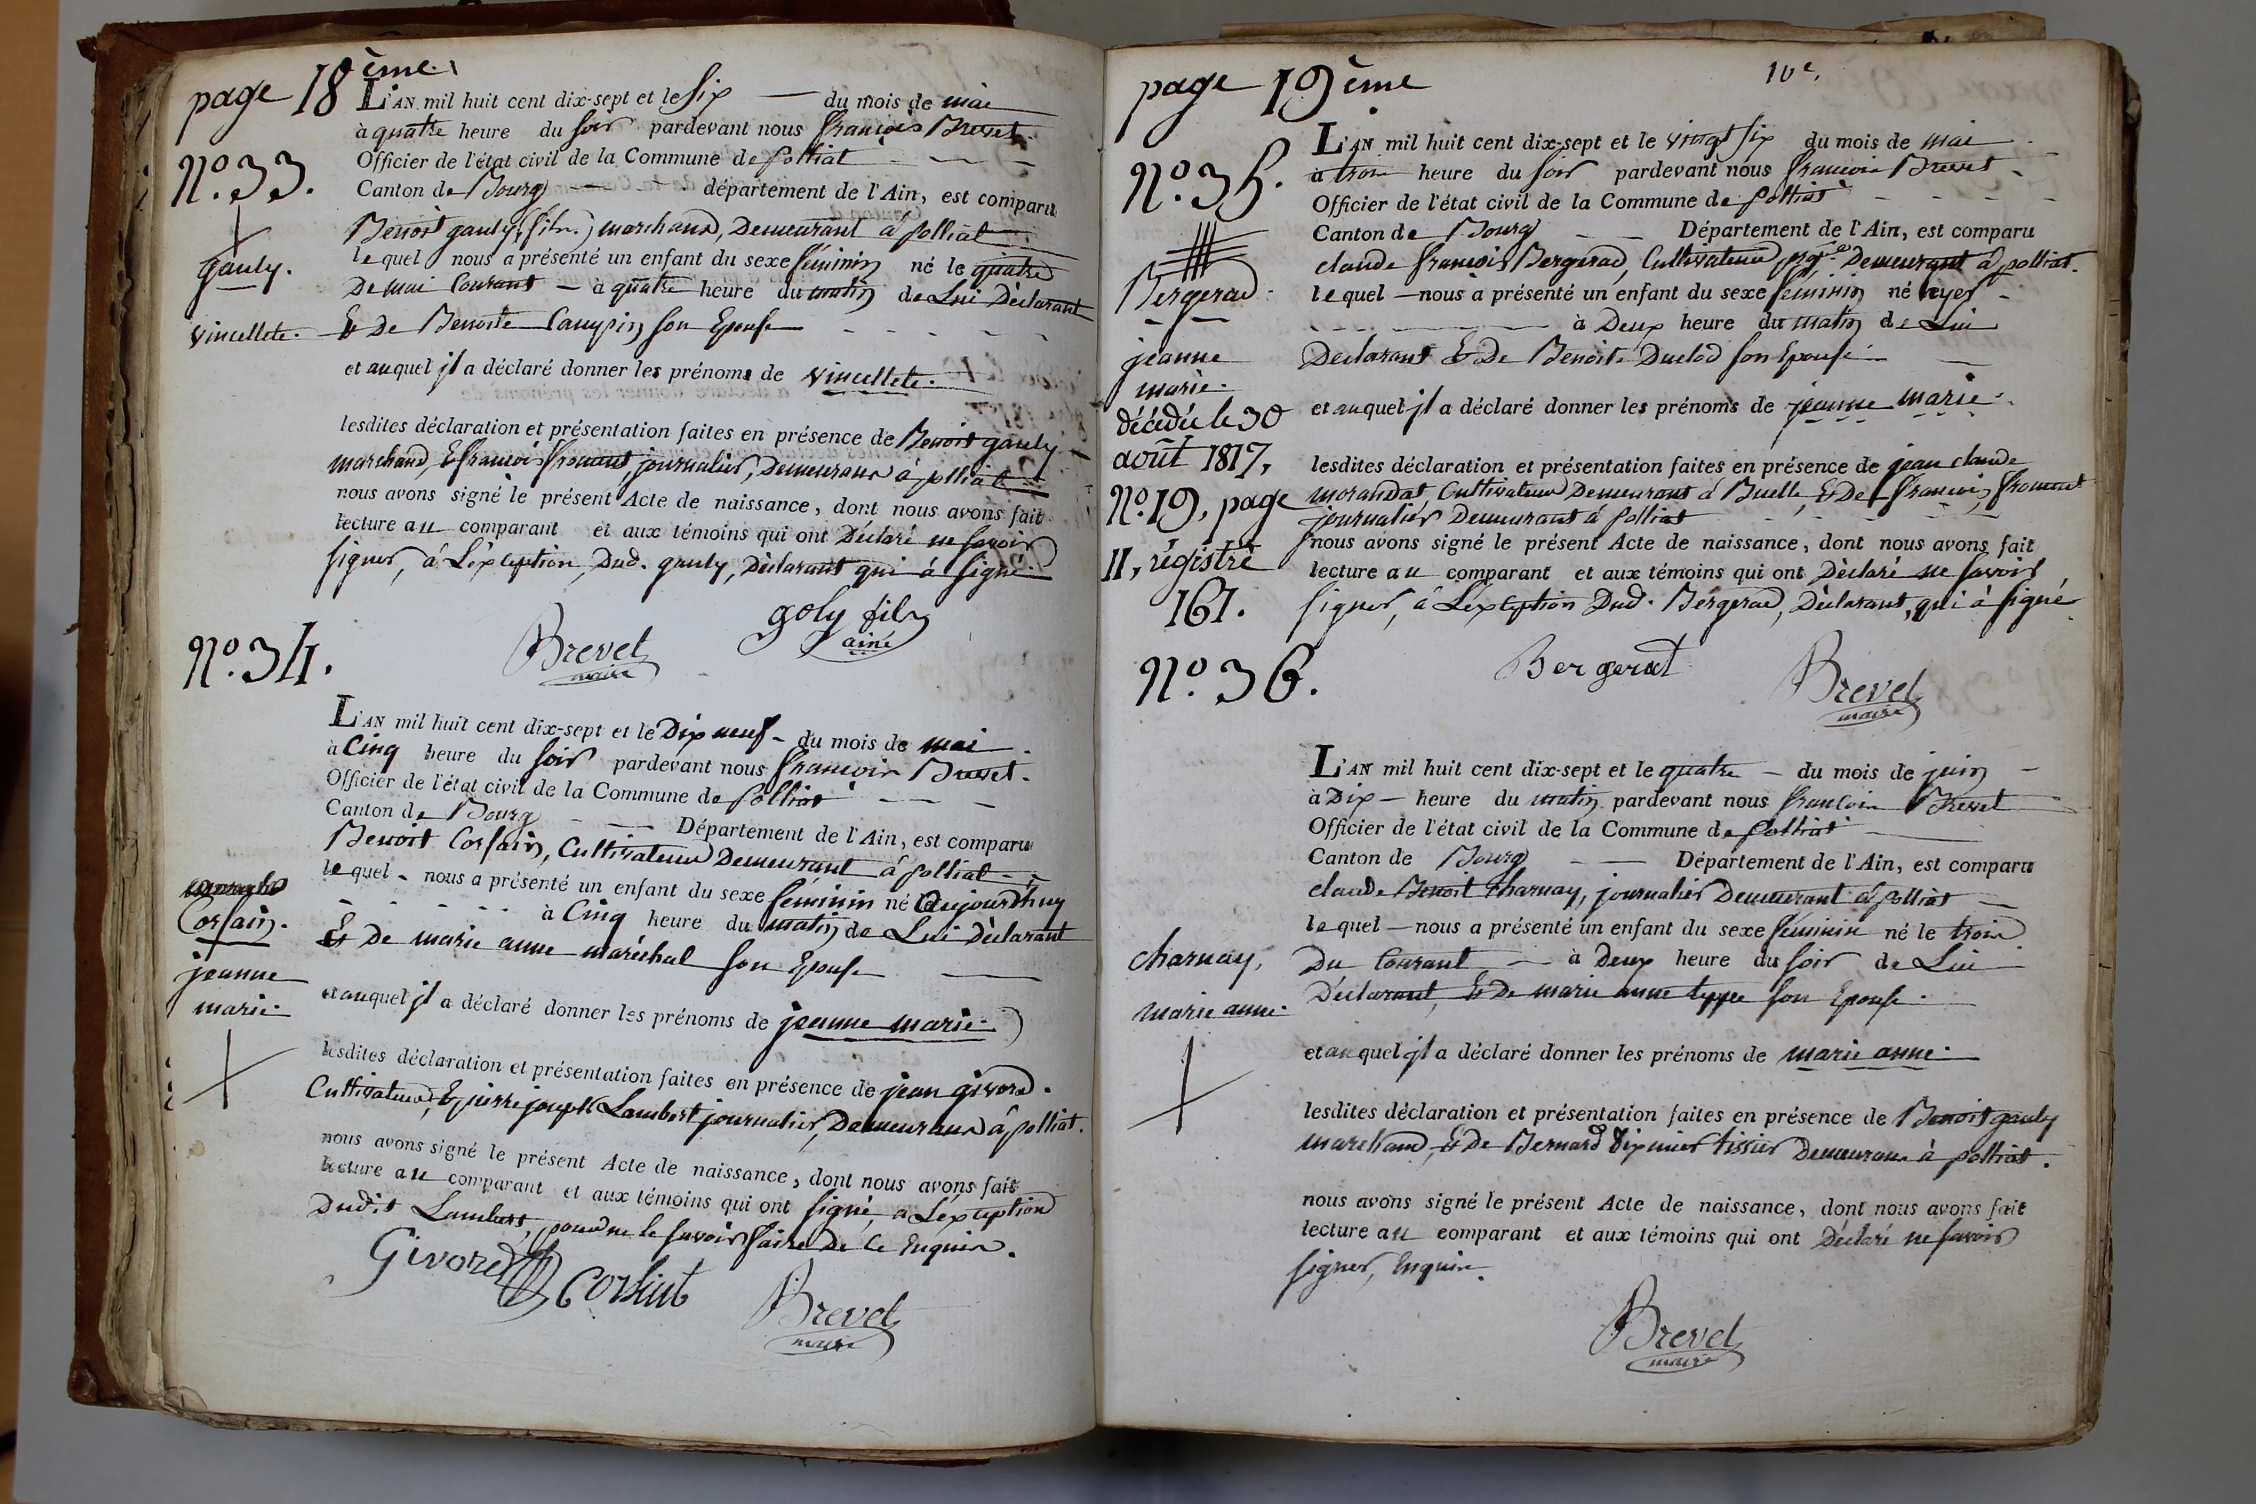 page 18ème.
L'AN mil huit cent dix-sept et le six du mois de mai
à quatre heure du soir pardevant nous françois Brevet
Officier de l'état civil de la Commune de polliat
Canton de Bourg département de l'Ain, est comparu
Benoit gauly (fils.) marchand, Demeurant à polliat
le quel nous a présenté un enfant du sexe féminin né le quatre
De mai Courant à quatre heure du matin de Lui Déclarant
Et De Benoite Caujpin son Epouse
et auquel jl a déclaré donner les prénoms de vincellete.
lesdites déclaration et présentation faites en présence de Benoit gauly
marchand, & francois froment, journalier, Demeurans à polliat
nous avons signé le présent Acte de naissance, dont nous avons fait
lecture au comparant et aux témoins qui ont Déclaré ne savoir
signer, à L'éxception, Dud. gauly, Déclarant qui à signé
goly fils
ainé
Brevet
maire
N°. 33.
gauly.
vincellete.
N°. 34.
L'AN mil huit cent dix-sept et le Dix neuf du mois de mai
à Cinq heure du soir pardevant nous francois Brevet.
Officier de l'état civil de la Commune de polliat
Canton de Bourg Département de l'Ain, est comparu
Benoit Corsain, Cultivateur Demeurant à polliat
le quel nous a présenté un enfant du sexe féminin né aujourdhuy
à Cinq heure du matin de Lui Déclarant
Et De marie anne maréchal son Epouse
et auquel jl a déclaré donner les prénoms de jeanne marie.
lesdites déclaration et présentation faites en présence de jean givord.
Cultivateur, & pierre joseph Lambert journalier, Demeurans à polliat.
nous avons signé le présent Acte de naissance, dont nous avons fait
lecture au comparant et aux témoins qui ont signé, à L'éxception
Dudit Lambert, pour ne le savoir faire De Ce Enquis.
Givord
Corsint
Brevet
maire
Corsain.
jeanne
marie.
page 19ème
10e.
N°. 35.
L'AN mil huit cent dix-sept et le vingt six du mois de mai
à trois heure du soir pardevant nous francois Brevet
Officier de l'état civil de la Commune de polliat
Canton de Bourg Département de l'Ain, est comparu
claude francois Bergerad, Cultivateur prop.re Demeurant à polliat.
le quel nous a présenté un enfant du sexe féminin né hyer
à Deux heure du matin de Lui
Déclarant & De Benoite Duclod son Epouse
et auquel jl a déclaré donner les prénoms de jeanne marie.
lesdites déclaration et présentation faites en présence de jean claude
morandat, Cultivateur Demeurant à Buelle, & De francois froment
journalier Demeurant à polliat
nous avons signé le présent Acte de naissance, dont nous avons fait
lecture au comparant et aux témoins qui ont Déclaré ne savoir
signer, à L'exception Dud. Bergerad, Déclarant, qui à signé
Bergerat
Brevet
maire
Bergerad.
jeanne
marie.
décédée le 30
août 1817,
N°. 19, page
11, régistre
161.
N°. 36.
L'AN mil huit cent dix-sept et le quatre du mois de juin
à Dix heure du matin pardevant nous francois Brevet
Officier de l'état civil de la Commune de polliat
Canton de Bourg Département de l'Ain, est comparu
claude Benoit charnay, journalier Demeurant à polliat
le quel nous a présenté un enfant du sexe féminin né le trois
Du Courant à Deux heure du soir de Lui
Déclarant, & De marie anne teppe son Epouse.
et auquel jl a déclaré donner les prénoms de marie anne.
lesdites déclaration et présentation faites en présence de Benoit gauly
marchand, & De Bernard Dixmier tissier Demeurans à polliat.
nous avons signé le présent Acte de naissance, dont nous avons fait
lecture au comparant et aux témoins qui ont Déclaré ne savoir
signer, Enquis.
Brevet
maire
charnay,
marie anne.